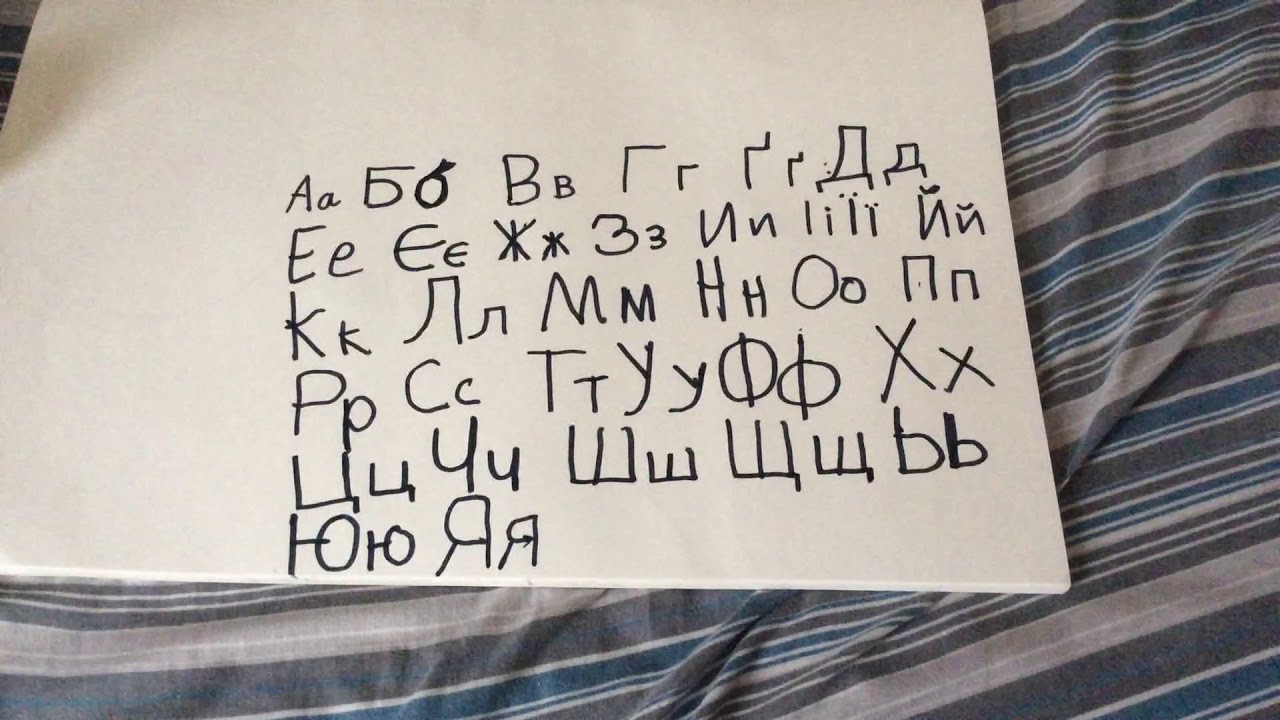 Аа Бб Вв Гг Ґґ Дд
Ее Єє Жж Зз Ии Іі Її Йй
Кк Лл Мм Нн Оо Пп
Рр Сс Тт Уу Фф Хх
Цц Чч Шш Щщ Ьь
Юю Яя